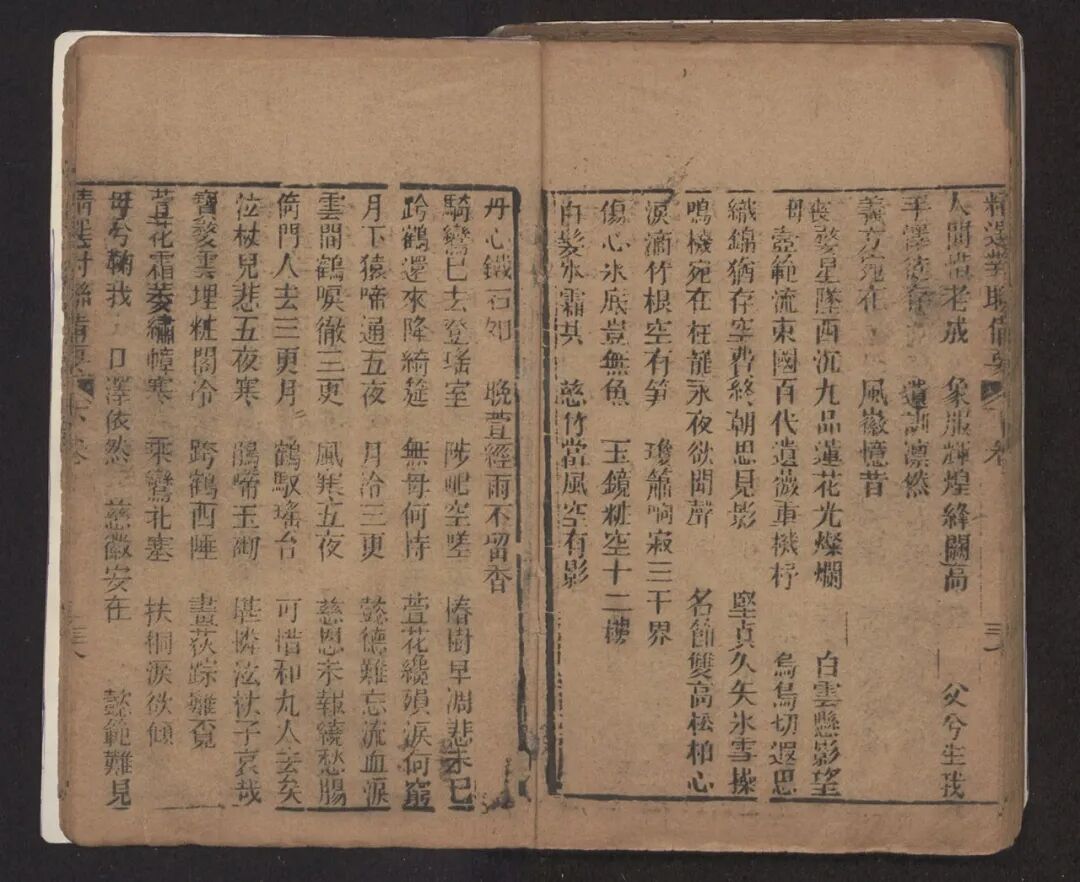 精選對聯備要 卷
人間惜老成 象服輝煌絳闕高 父兮生我
手澤徒存 遺訓凜然
義方宛在 風徽憶昔
喪婺星墜西沉九品蓮花光燦爛 白雲懸影望
母壼範流東國百代遺薇車機杼 烏鳥切遐思
織錦猶存空費終朝思見影 堅貞久矢氷雪操
鳴機宛在枉龍永夜欲聞聲 名節雙高松柏心
淚滴竹根空有笋 瓊簫响寂三千界
傷心氷底豈無魚 玉鏡粧空十二樓
白髮氷霜共 慈竹當風空有影
丹心鐵石如 晚萱經雨不留香
騎鸞已去登瑤室 陟屺空嗟 椿樹早凋悲未已
跨鶴還來降綺筵 無母何恃 萱花纔殞淚何窮
月下猿啼通五夜 月冷三更 懿德難忘流血淚
雲間鶴唳徹三更 風寒五夜 慈恩未報繞愁腸
倚門人去三更月 鶴馭瑤台 可惜和丸人去矣
泣杖兒悲五夜寒 鵑啼玉砌 堪憐泣杖子哀哉
寶婺雲埋粧閣冷 跨鶴西陲 畫荻踪難覓
萱花霜萎繡幃寒 乘鸞北塞 扶桐淚欲傾
母兮鞠我 口澤依然 慈徽安在 懿範難見
精選對聯備要 下卷